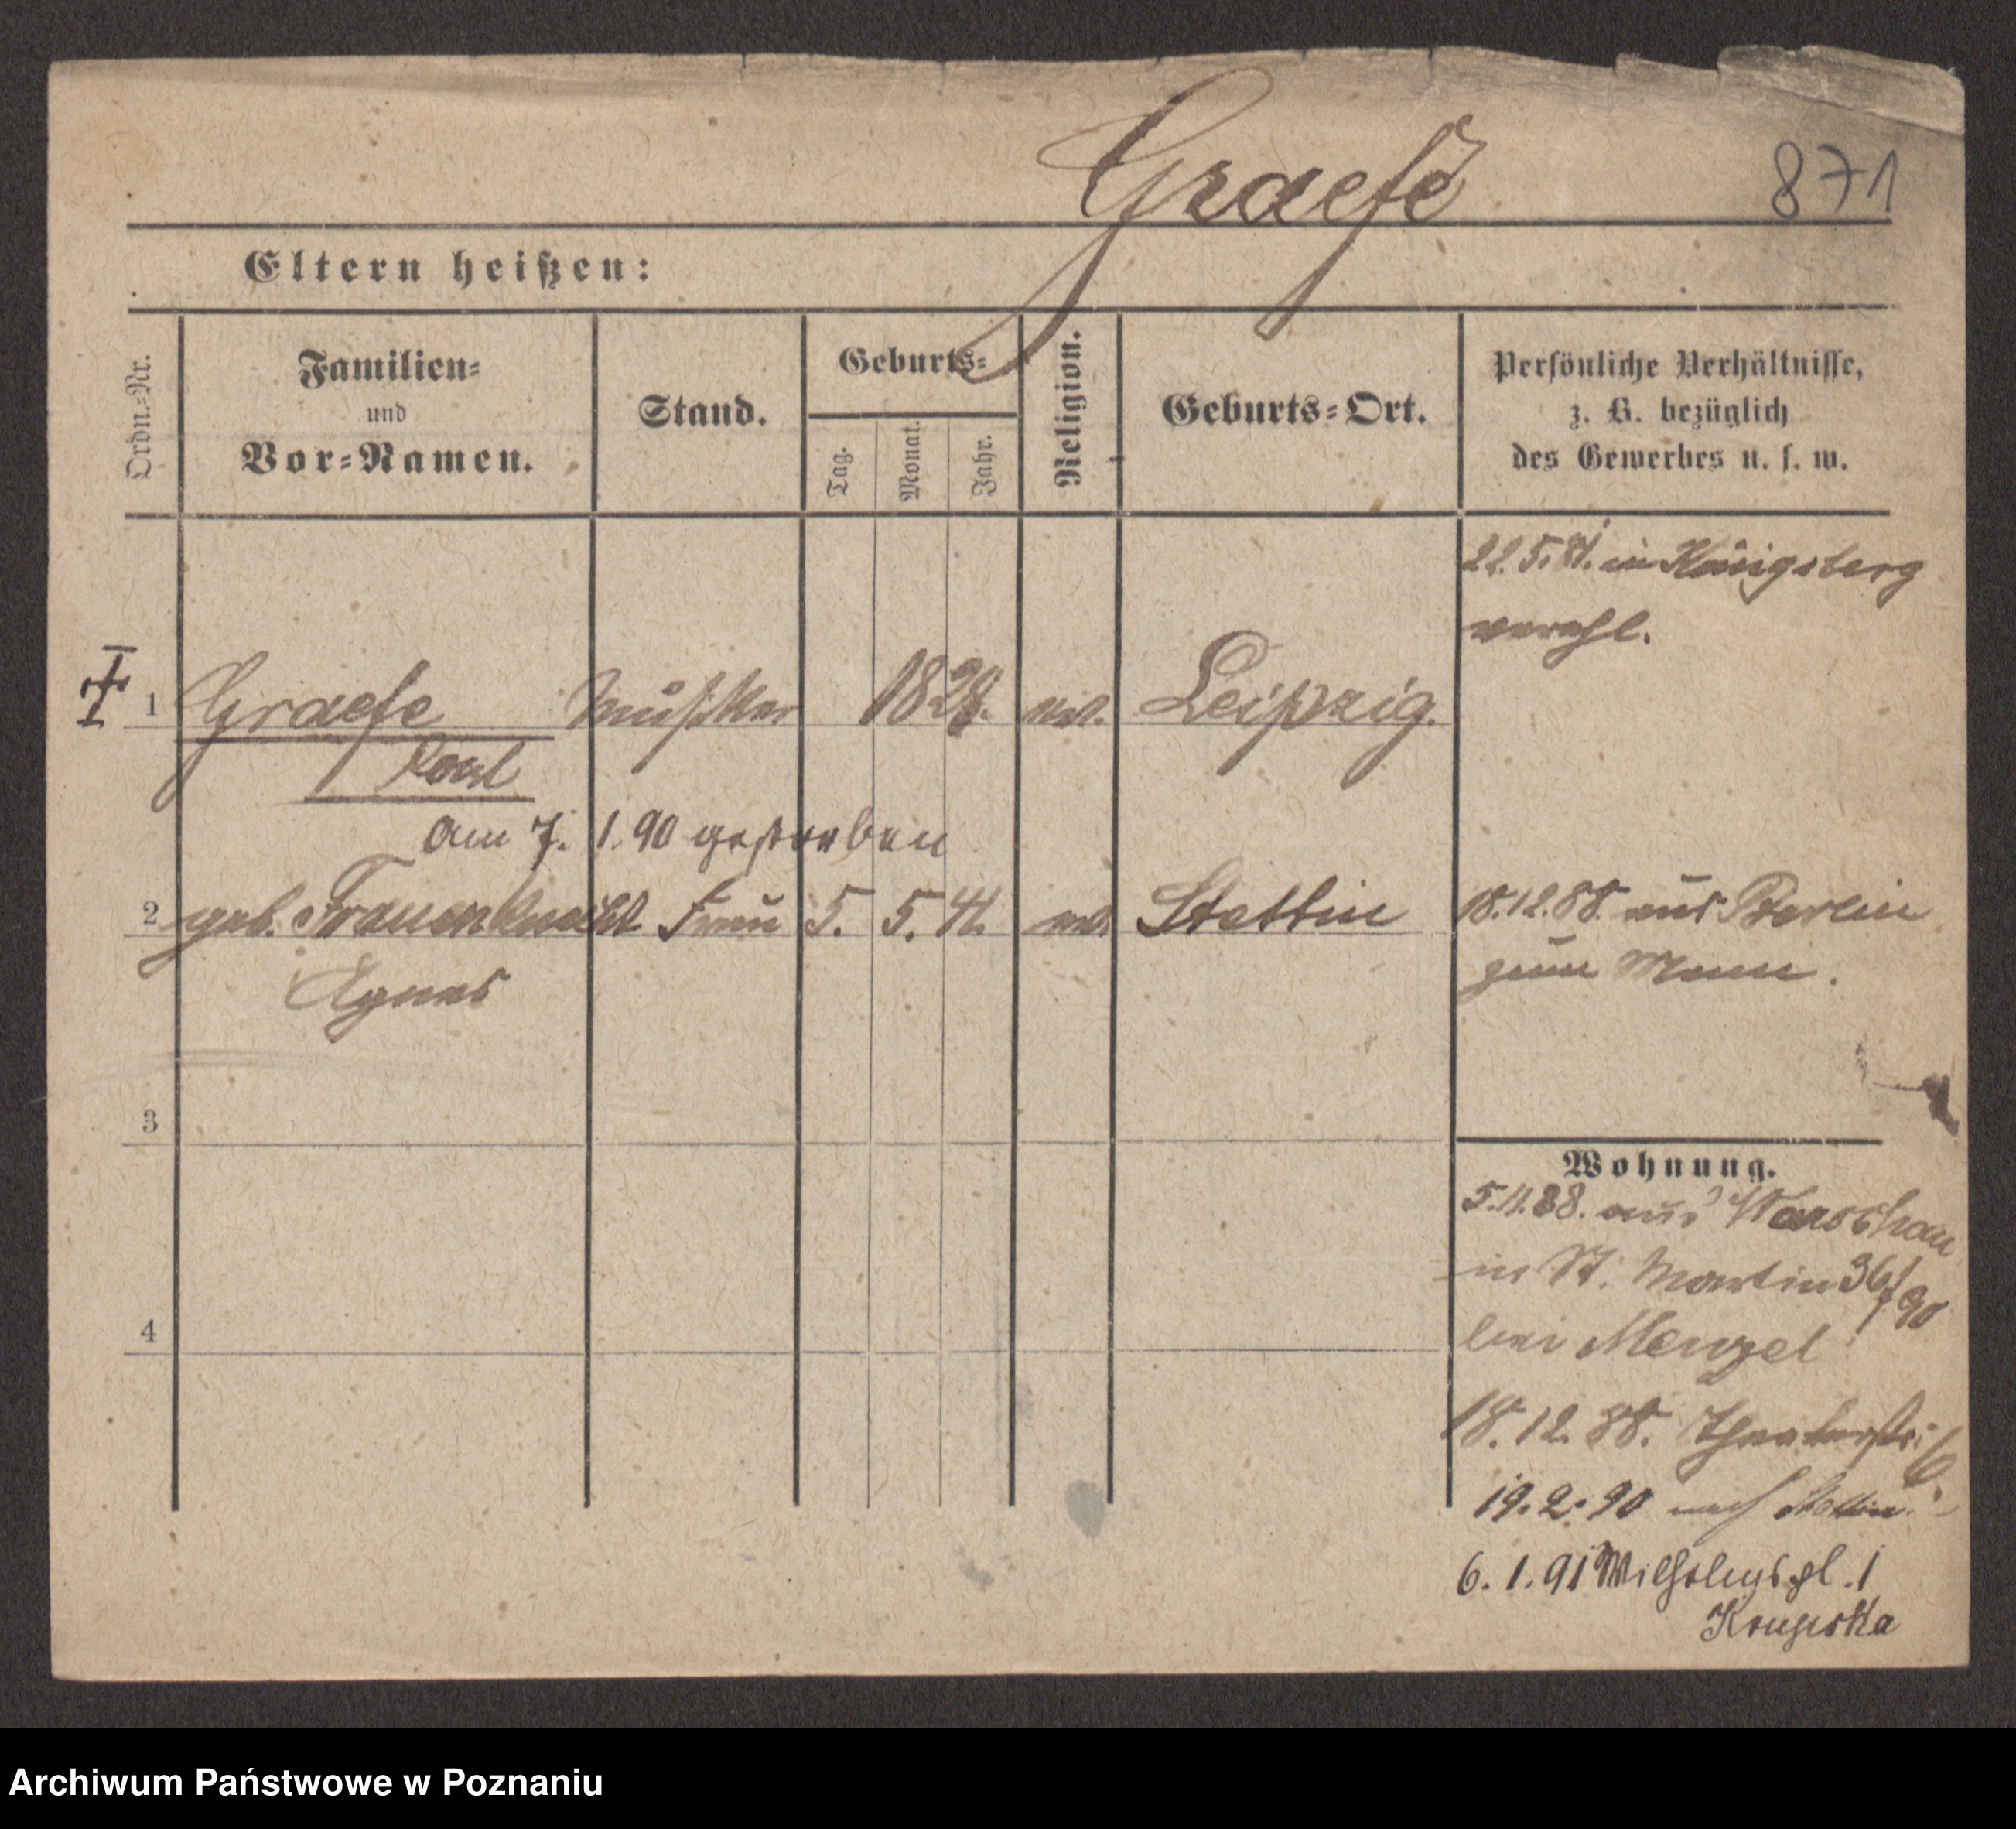 Graefe
871
Eltern heißen:
Ordn.-Nr.
Familien-
und
Vor-Namen.
Stand.
Geburts-
Tag.
Monat.
Jahr.
Religion.
Geburts-Ort.
Persönliche Verhältnisse,
z. B. bezüglich
des Gewerbes u. s. w.
22.5. in Königsberg
verehl.
1 Graefe Musiker 1828. ev. Leipzig.
Karl
am 7. 1. 90 gestorben
2 geb. Frauenknecht Frau 5. 5. 41. ev. Stettin
Agnes
18.12.88. aus Berlin
zum Mann.
3
4
Wohnung.
5.11.88. aus Warschau
in St. Martin 36/
bei Menzel
18.12.88. Theaterstr. 6.
19.2.90 nach Stettin.
6.1.91 Wilhelmspl. 1
Krupska
Archiwum Państwowe w Poznaniu